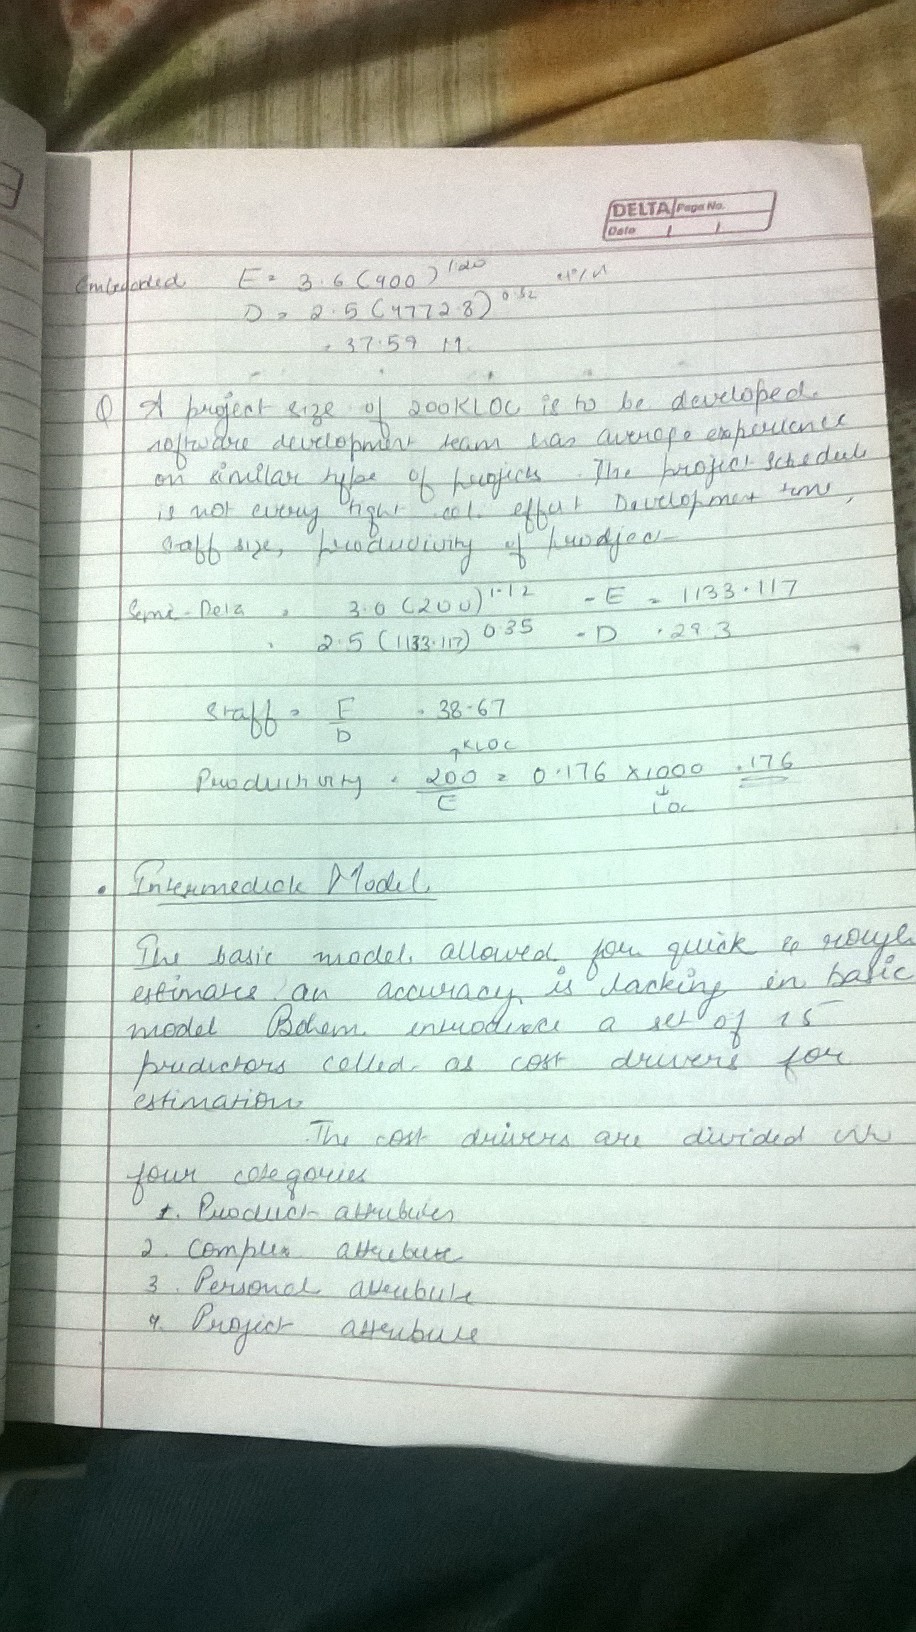 DELTA Page No.
Date / /
Embedded E = 3.6 (400)^1.20
D = 2.5 (4772.8)^0.32
= 37.59 M.
Q A project size of 200KLOC is to be developed.
software development team has average experience
on similar type of projects. The project schedule
is not every tight. cal. effort Development time,
staff size, productivity of
Semi-Deta = 3.0 (200)^1.12 - E = 1133.117
= 2.5 (1133.117)^0.35 - D = 29.3
Staff = E/D = 38.67
KLOC
Productivity = 200/E = 0.176 x1000 = 176
LOC
• Intermediate Model.
The basic model allowed for quick & rough
estimates an accuracy is lacking in basic
model introduce a set of 15
predictors called as cost drivers for
estimation
The cost drivers are divided in
four categories
1. Product attributes
2. Complex attribute
3. Personal attribute
4. Project attribute